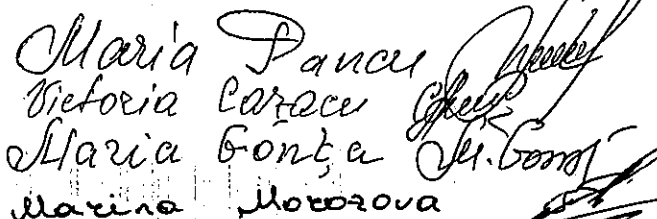 Maria Pancu
Victoria Cazacu
Maria Gonța M. Gonț
Marina Morozova